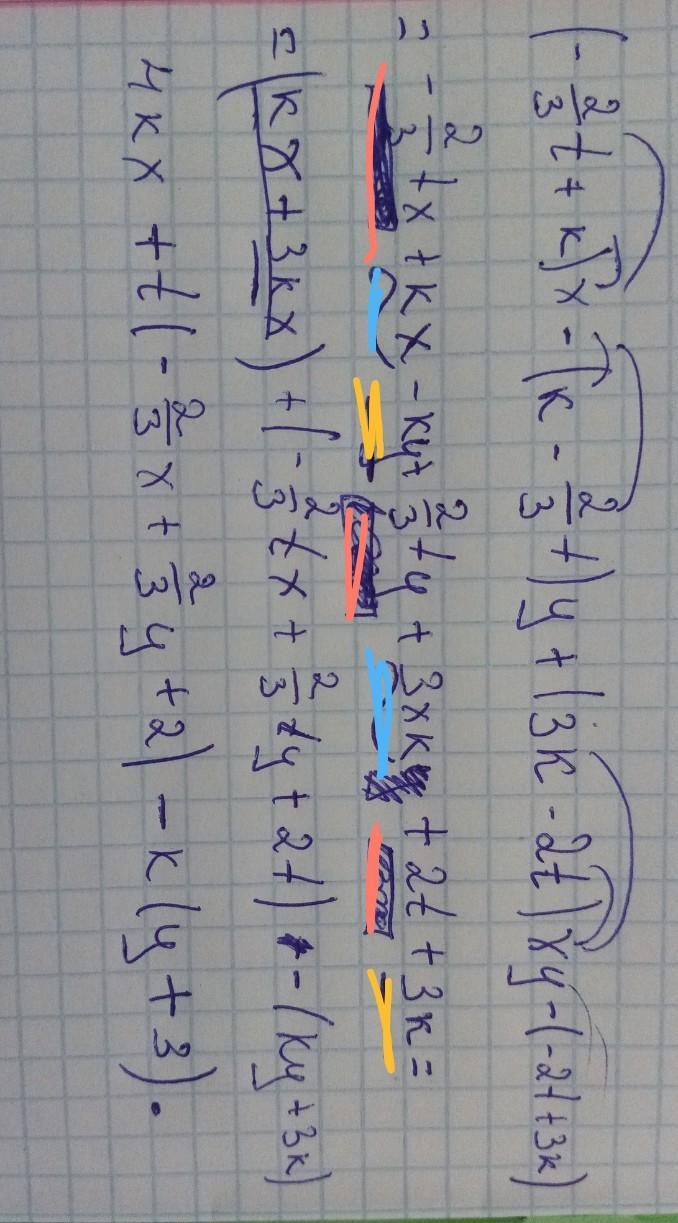 (-2/3t+k)x-(k-2/3t)y+(3k-2t)xy-(-2t+3k)
=-2/3tx+kx-ky+2/3ty+3xk+2t+3k=
=(kx+3kx)+(-2/3tx+2/3ty+2t)-(ky+3k)
4kx+t(-2/3x+2/3y+2)-k(y+3).